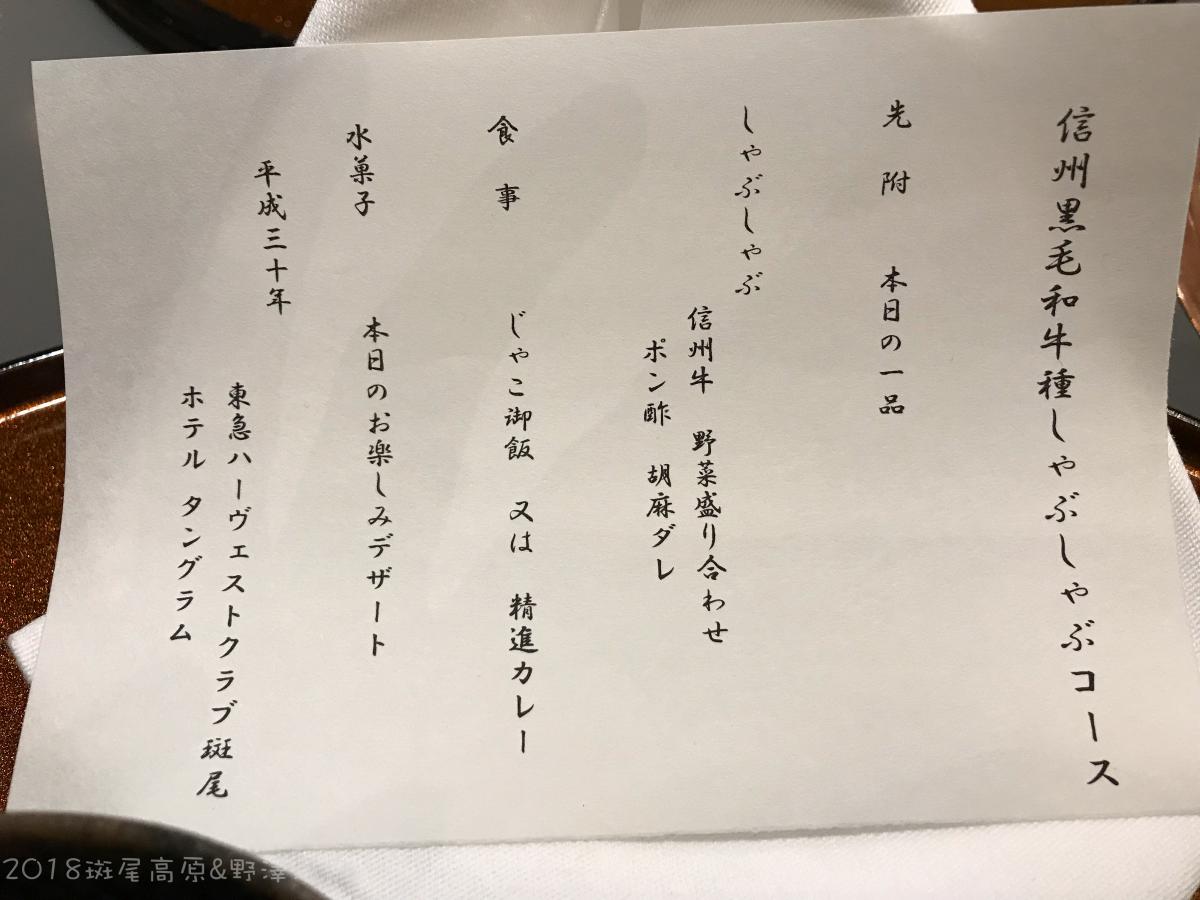 信州黒毛和牛種しゃぶしゃぶコース
先附 本日の一品
しゃぶしゃぶ
信州牛 野菜盛り合わせ
ポン酢 胡麻ダレ
食事 じゃこ御飯 又は 精進カレー
水菓子 本日のお楽しみデザート
平成三十年
東急ハーヴェストクラブ斑尾
ホテル タングラム
2018斑尾高原&野澤